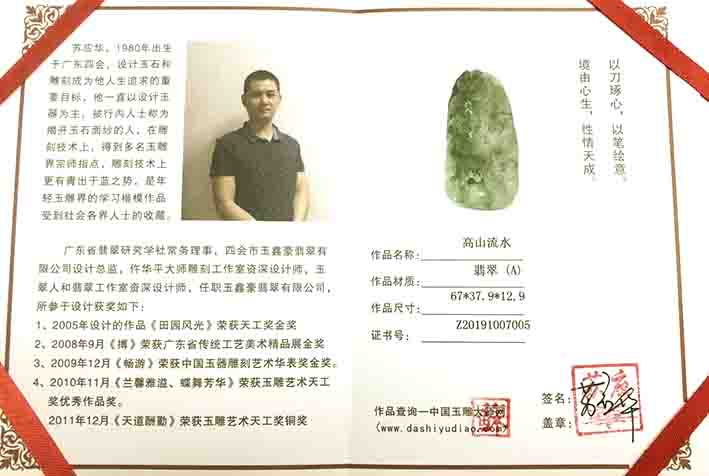 苏应华，1980年出生
于广东四会，设计玉石和
雕刻成为他人生追求的重
要目标，他一直以设计玉
器为主，被行内人士称为
揭开玉石面纱的人，在雕
刻技术上，得到多名玉雕
界宗师指点，雕刻技术上
更有青出于蓝之势。是年
轻玉雕界的学习楷模作品
受到社会各界人士的收藏。
广东省翡翠研究学社常务理事，四会市玉鑫豪翡翠有
限公司设计总监，仵华平大师雕刻工作室资深设计师，玉
翠人和翡翠工作室资深设计师，任职玉鑫豪翡翠有限公司，
所参于设计获奖如下：
1、2005年设计的作品《田园风光》荣获天工奖金奖
2、2008年9月《搏》荣获广东省传统工艺美术精品展金奖
3、2009年12月《畅游》荣获中国玉器雕刻艺术华表奖金奖。
4、2010年11月《兰馨雅溢、蝶舞芳华》荣获玉雕艺术天工
奖优秀作品奖。
2011年12月《天道酬勤》荣获玉雕艺术天工奖铜奖
以刀琢心，以笔绘意。
境由心生，性情天成。
作品名称：高山流水
作品材质：翡翠（A）
作品尺寸：67*37.9*12.9
证书号：Z20191007005
作品查询一中国玉雕大师网
(www.dashiyudiao.com)
签名：
盖章：